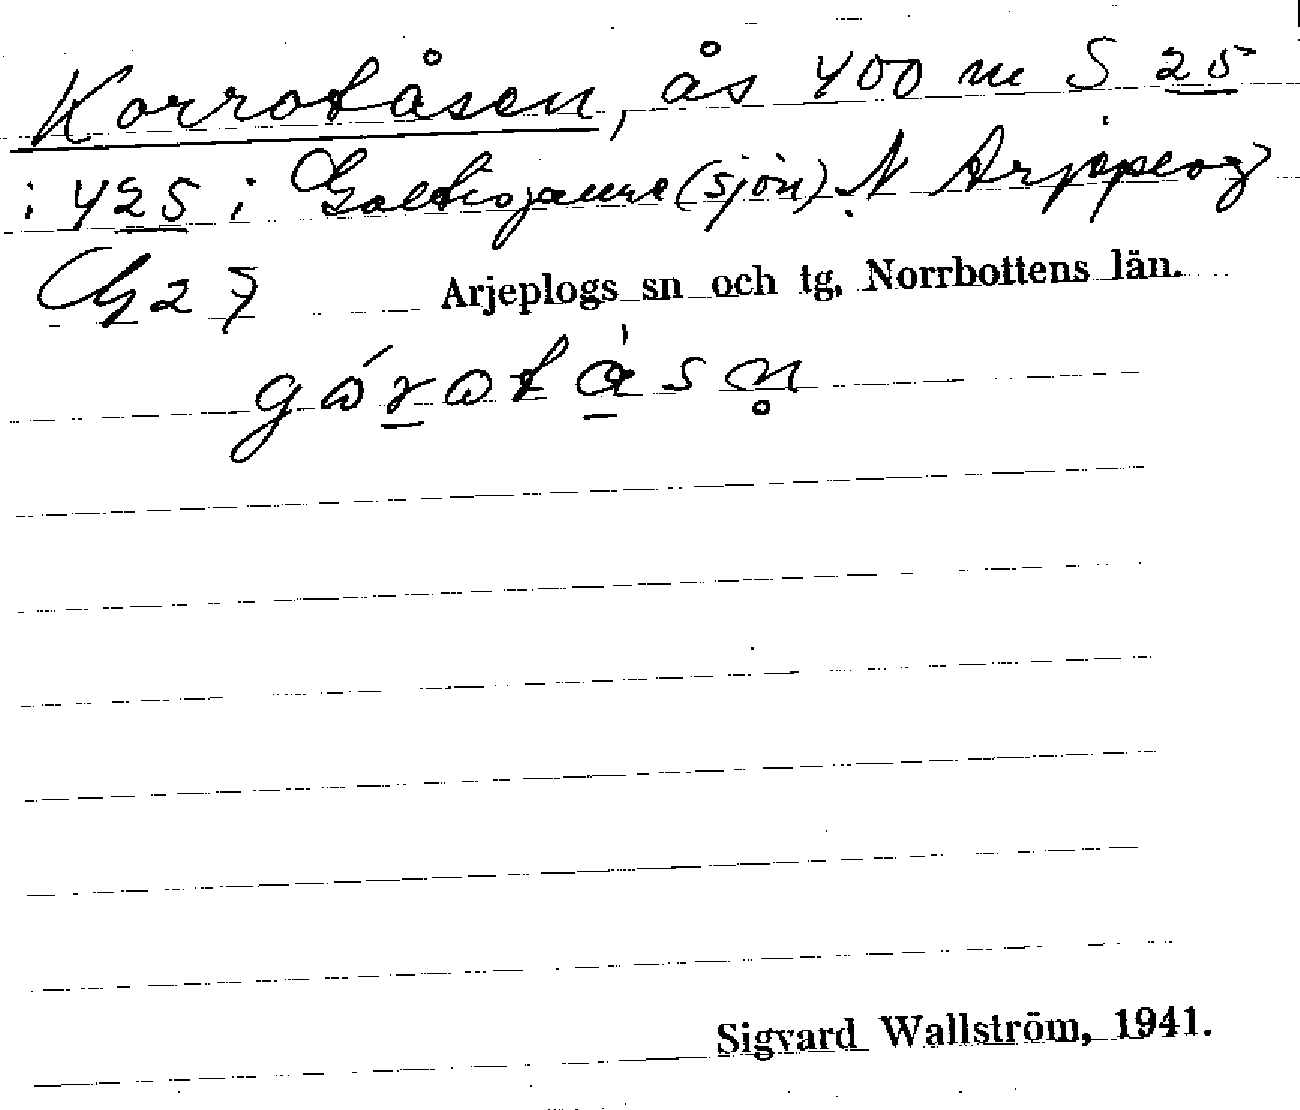 Korrotåsen, ås 400 m S 25
i 425 i Galtisjaure (sjön) N Arjeplog
G 27 Arjeplogs sn och tg, Norrbottens län.
Sigvard Wallström, 1941.